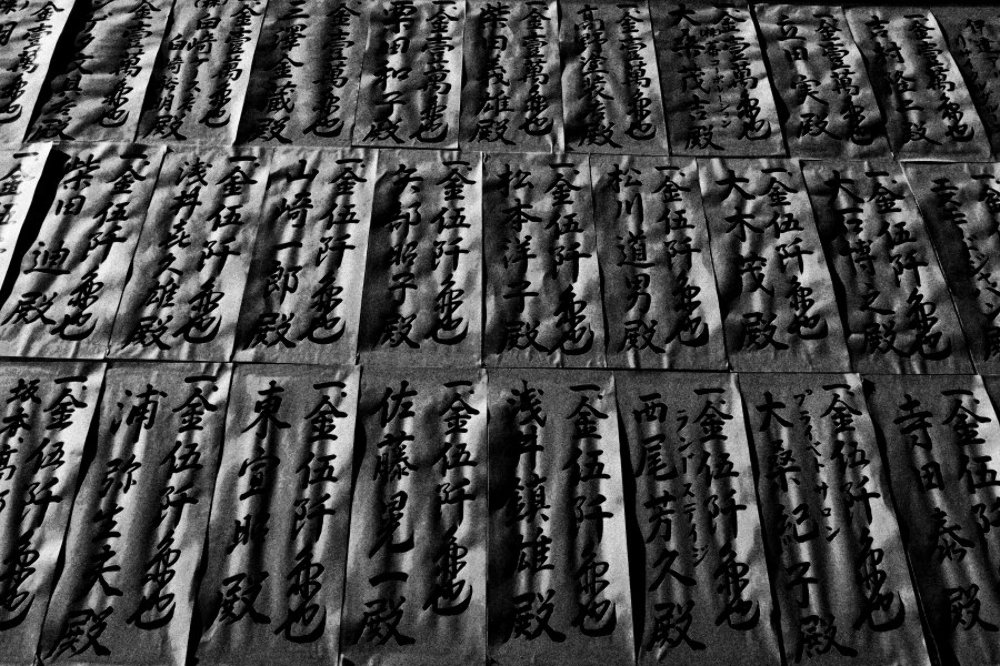 一金壹萬亀也
吉村隆二殿
一金壹萬亀也
立田実殿
一金壹萬亀也
大桑茂吉殿
一金壹萬亀也
高野塗装店殿
一金壹萬亀也
柴田義雄殿
一金壹萬亀也
栗田和子殿
金壹萬亀也
三澤金蔵殿
金壹萬亀也
一金伍阡亀也
大石博之殿
一金伍阡亀也
大木茂殿
一金伍阡亀也
松川道男殿
一金伍阡亀也
松本洋子殿
一金伍阡亀也
矢部昭子殿
一金伍阡亀也
山崎一郎殿
一金伍阡亀也
浅井喜久雄殿
一金伍阡亀也
柴田迪殿
一金伍
一金伍阡
寺田泰殿
一金伍阡亀也
プライベートサロン
大桑紀子殿
一金伍阡亀也
ランバースステイジ
西尾芳久殿
一金伍阡亀也
浅井鎮雄殿
一金伍阡亀也
佐藤晃一殿
一金伍阡亀也
東宣昭殿
一金伍阡亀也
浦弥生夫殿
一金伍阡亀也
坂本